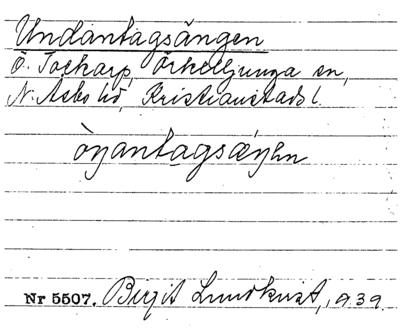 Undantagsängen
Ö. Tockarp, Örkelljunga sn,
N. Åsbo hd, Kristianstads l.
òŋantagsæŋen
Nr 5507. Birgit Lundkvist, 1939.